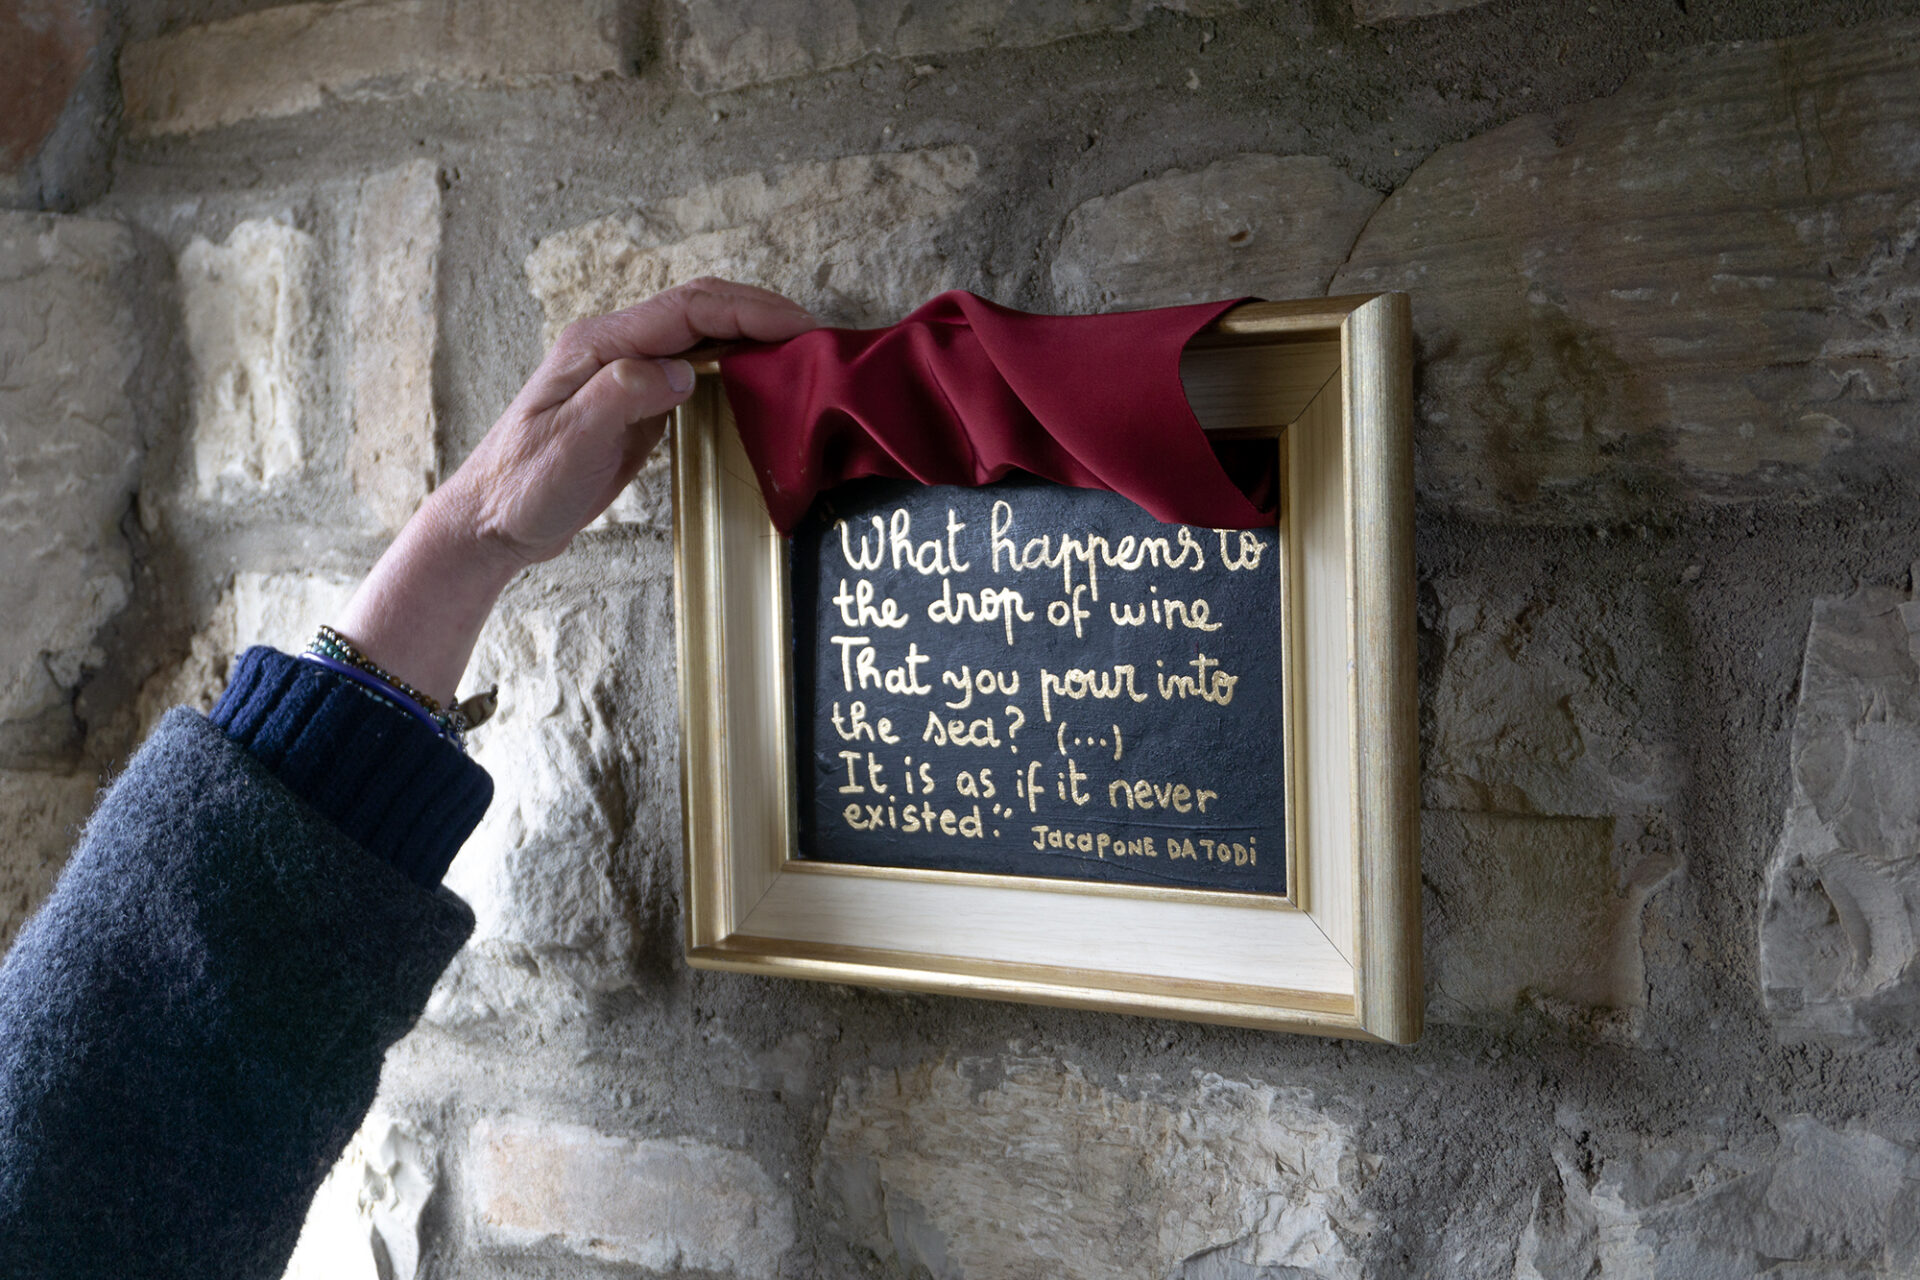 "What happens to
the drop of wine
That you pour into
the sea? (...)
It is as if it never
existed."
Jacopone da Todi